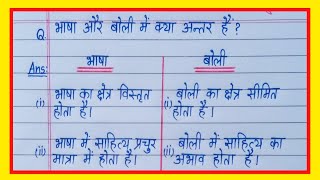 Q. भाषा और बोली में क्या अन्तर हैं ?
Ans: भाषा बोली
(i) भाषा का क्षेत्र विस्तृत (i) बोली का क्षेत्र सीमित
होता है। होता है।
(ii) भाषा में साहित्य प्रचुर (ii) बोली में साहित्य का
मात्रा में होता है। अभाव होता है।